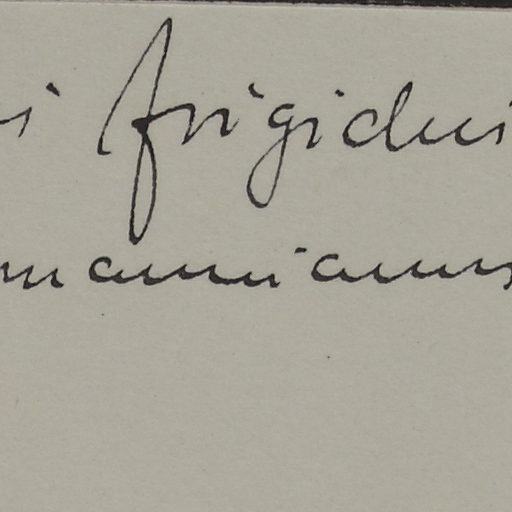 i frigidus
mannianus